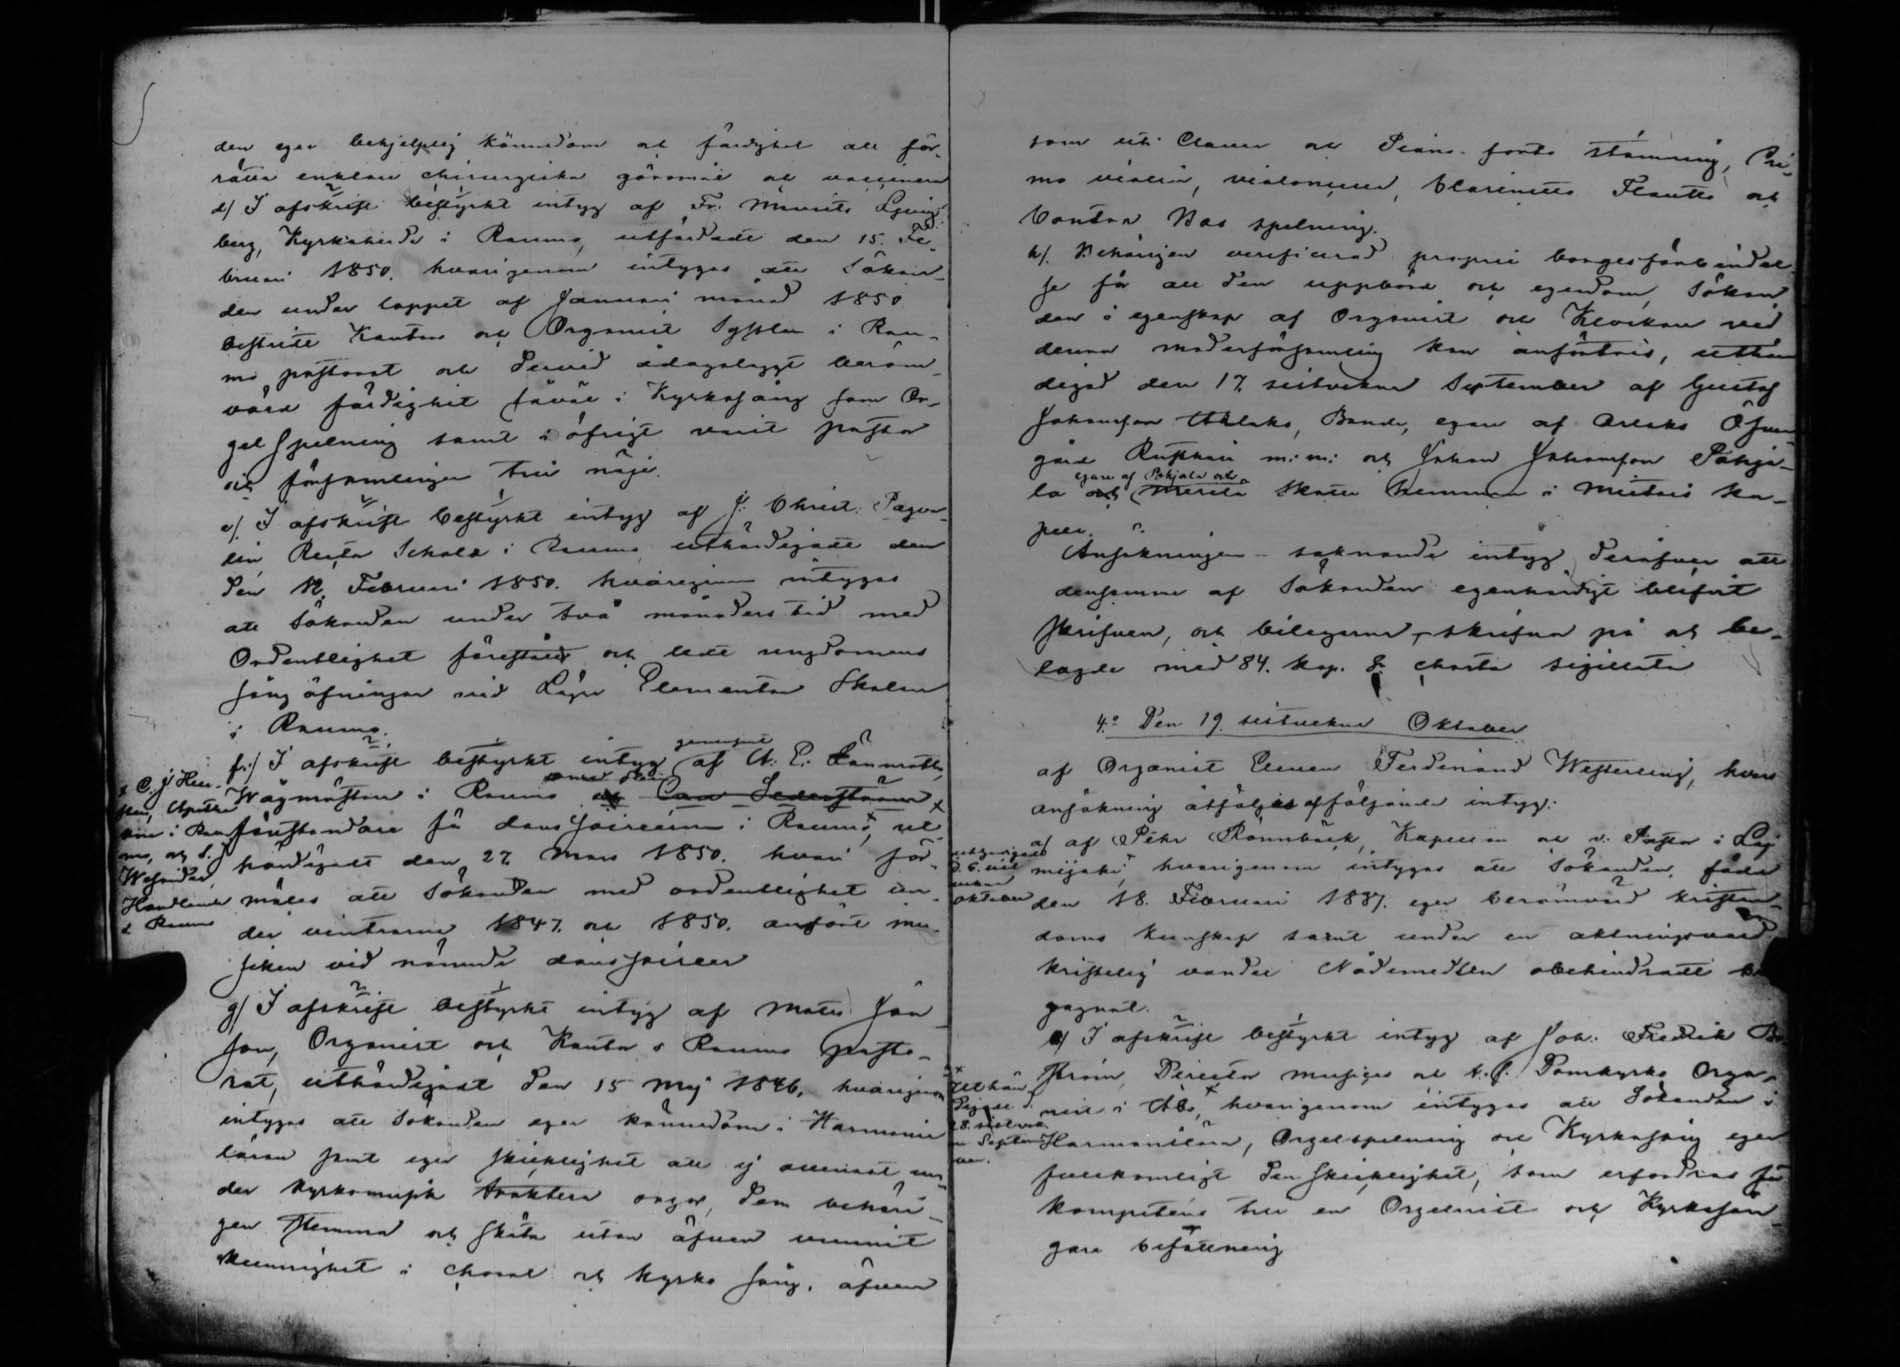 den eger behjelplig kännedom och färdighet att för-
rätta enklare chirurgiska göromål och vaccinera
d/ I afskrift bestyrkt intyg af Fr. Maurits Ljung
berg, Kyrkoherde i Raumo, utfärdadt den 15. Fe-
bruari 1850. hvarigenom intygas att Sökan-
den under loppet af Januari månad 1850
bestridt Kantors och Organist Sysslan i Rau-
mo pastorat och dervid ådagalaggt beröm-
värd färdighet såväl i Kyrkosång som Or-
gel Spelning samt i öfrigt varit pastor
och församlingen till nöje.
e/. I afskrift bestyrkt intyg af J. Christ.
Rector Scholæ i Raumo uthändigadt den
den 12. Februari 1850. hvarigenom intygas
att Sökanden under två månaders tid med
Ordentlighet förestått och ledt ungdomens
sång öfningar vid Lägre Elementar Skolan
i Raumo.
f:/ I afskrift bestyrkt intyg af A. E. Lönnroth,
Vågmästare i Raumo
x C. J.
i Rau föreståndare för danssoiréerna i Raumo, ut-
mo, och
händigadt den 27 Mars 1850. hvari för-
Handlande mäles att Sökanden med ordentlighet un-
i Raumo der vintrarne 1847. och 1850. anfört mu-
siken vid nämnde danssoiréer
g/ I afskrift bestyrkt intyg af Matts Jan
son, Organist och Kantor i Raumo pasto-
rat, uthändigadt den 15 Maj 1846, hvarigenom
intygas att Sökanden eger kännedom i Harmonie
läran samt eger skicklighet att ej allenast un-
der kyrkomusik traktera orgor, dem behöri-
gen stemma och sköta utan äfven vunnit
kunnighet i choral och kyrko sång, äfven
som uti Claver och Piano-forte stämning, Pri-
mo violin, violoncell, Clarinette Flautto och
Contra Bas spelning.
h/. Behörigen verifierad proprie borgesförbindel-
se för all den uppbörd och egendom, Sökan-
den i egenskap af Organist och Klockare vid
denna moderförsamling kan anförtros, uthän
digad den 17 sistvekne September af Gustaf
Johansson Uhlaks, Bonde, egare af Arlaks Öfver
gård Rusthåll m: m: och Johan Johansson Pohja-
egare af Pohjala och
la och Merila Skatte hemman i Mietois ka-
pell.
Ansökningen saknande intyg deröfver att
densamma af Sökanden egenhändigt blifvit
skrifven, och bilagorna skrifna på och be-
lagde med 84. kop. S. charta sigillata
4:o Den 19 sistvekne Oktober
af Organist Eleven Ferdinand Westerling, hvars
ansökning åtföljes af följande intyg:
a/ af Pehr Rönnbäck, Kapellan och v: Pastor i Loi
mijoki, hvarigenom intygas att Sökanden, född
Oktober den 18. Februari 1837. eger berömvärd kristen-
doms kunskap samt under en aktningsvärd
kristelig vandel Nådemedlen obehindradt be
gagnat.
b/ I afskrift bestyrkt intyg af Joh. Fredrik
ström, Director musices och t. f. Domkyrko Orga-
nist i Åbo, hvarigenom intygas att Sökanden i
Harmonilära, Orgelspelning och Kyrkosång eger
fullkomligt den skicklighet, som erfordras för
kompetens till en Organist och Kyrkosån
gare befattning